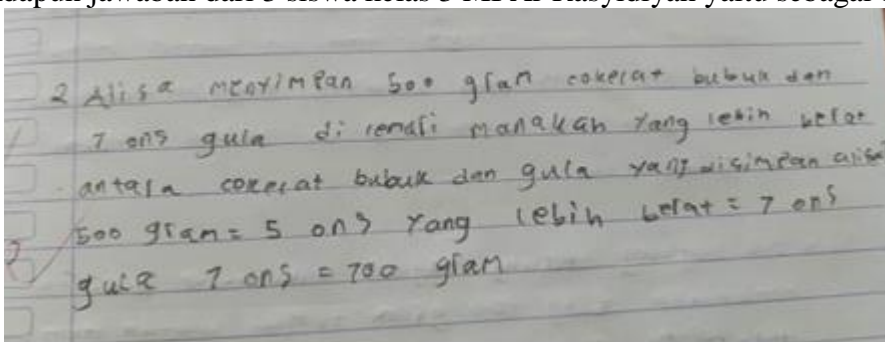 dapun jawaban dari 3 siswa kelas 5 MI Ar-Rasyidiyah yaitu sebagai
2 Alisa menyimpan 500 gram cokelat bubuk dan
7 ons gula di lemari manakah yang lebih berat
antara cokelat bubuk dan gula yang disimpan alisa
500 gram = 5 ons yang lebih berat = 7 ons
gula 7 ons = 700 gram